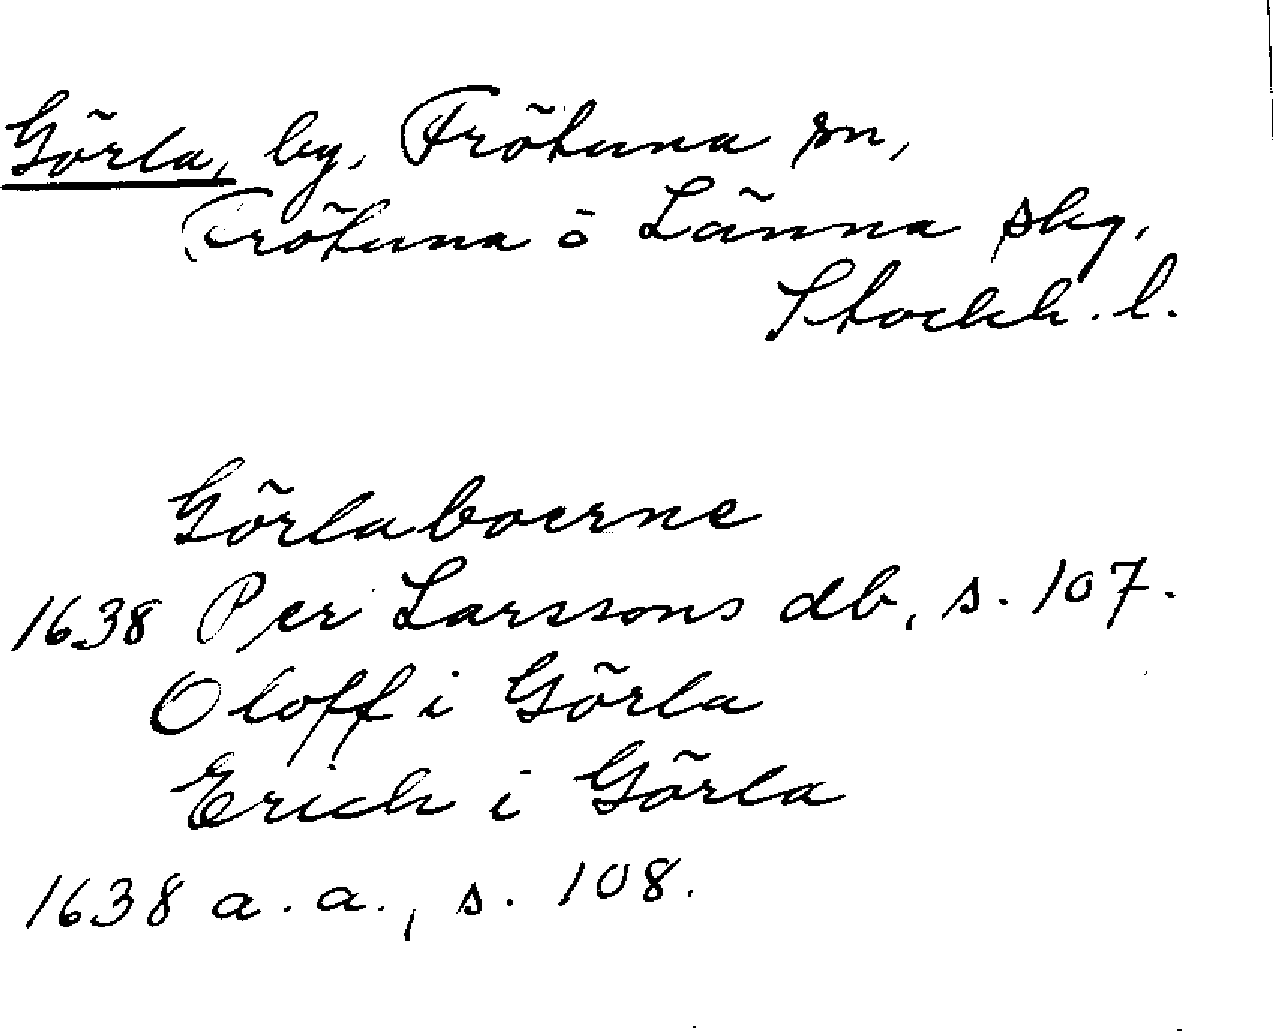 Görla, by, Frötuna sn,
Frötuna o Länna skg,
Stockh. l.
Görlaboerne
1638 Per Larssons db, s. 107.
Oloff i Görla
Erich i Görla
1638 a. a., s. 108.